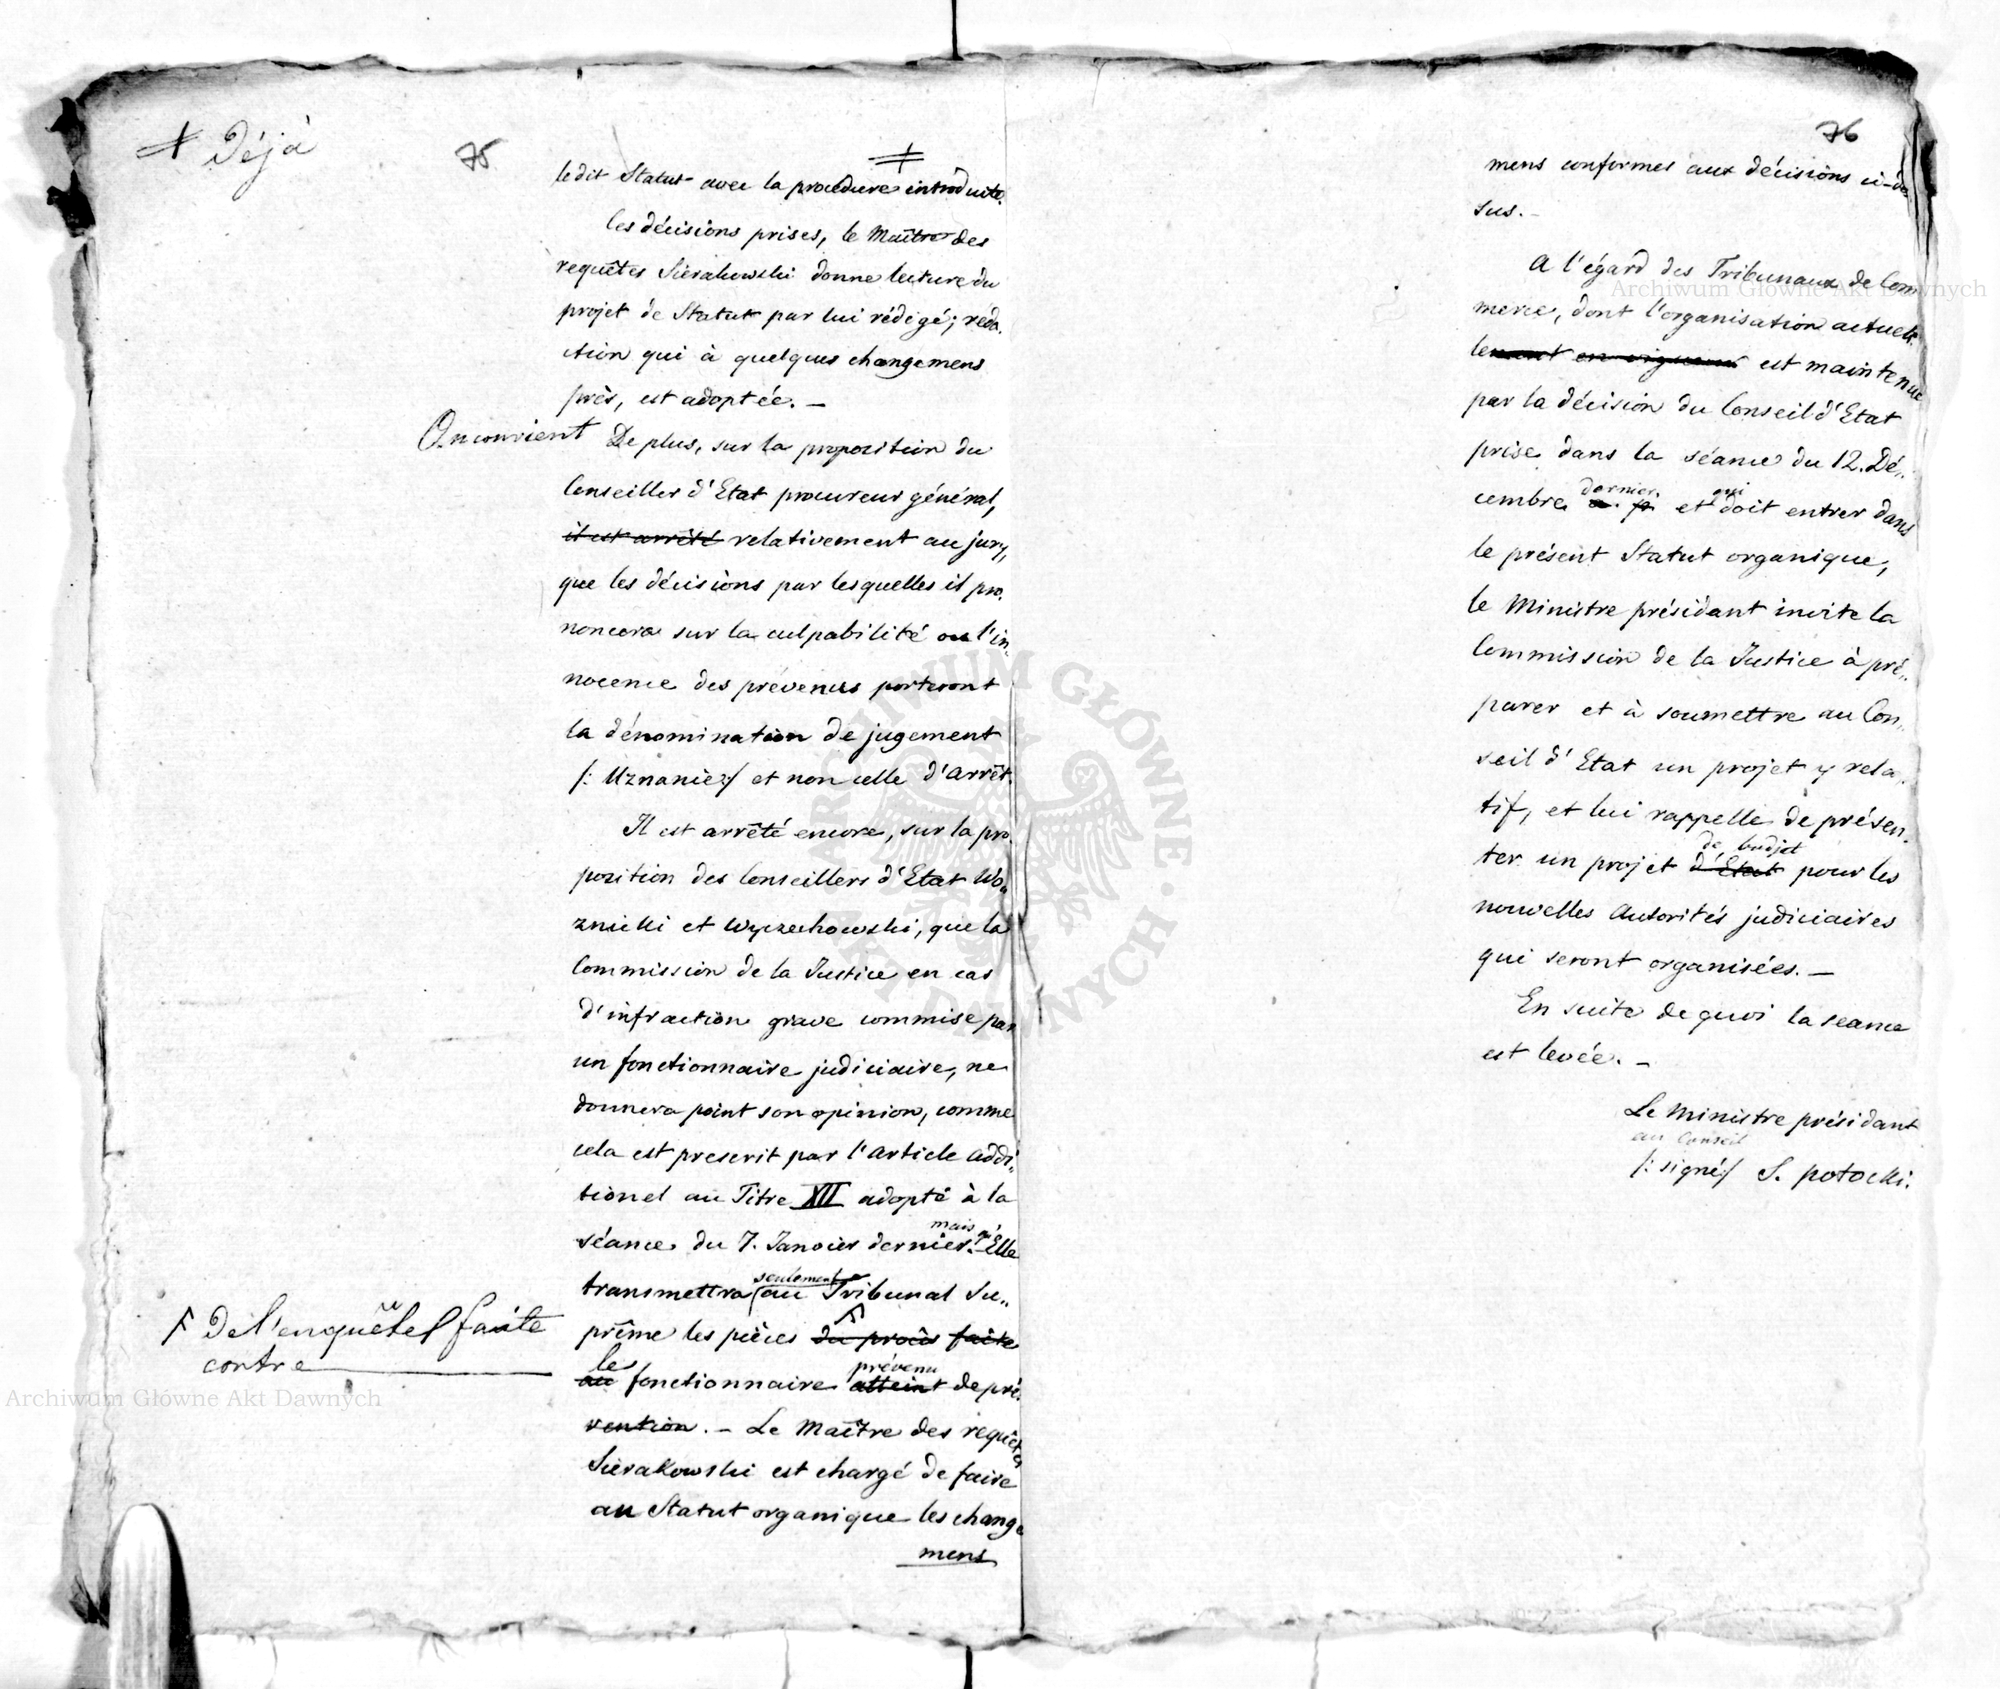 ≠ Déjà
75
≠
ledit Statut avec la procédure introduite.
Ces décisions prises, le Maître des
requêtes Sierakowski donne lecture du
projet de Statut par lui rédigé; réda-
ction qui à quelques changemens
près, est adoptée. —
On convient
De plus, sur la proposition du
Conseiller d'Etat procureur général,
il est arrêté relativement au jury,
que les décisions par lesquelles il pro-
noncera sur la culpabilité ou l'in-
nocence des prévenus porteront
la dénomination de jugement
/: Uznanie :/ et non celle d'arrêt.
Il est arrêté encore, sur la pro-
position des Conseillers d'Etat Wo-
znicki et Wyczechowski, que la
Commission de la Justice en cas
d'infraction grave commise par
un fonctionnaire judiciaire, ne
donnera point son opinion, comme
cela est prescrit par l'article addi-
tionel au Titre XII adopté à la
séance du 7. Janvier dernier. mais qu'Elle
transmettra seulement au Tribunal Su-
prême les pièces du procès faite
de l'enquête faite
contre
le
au fonctionnaire prévenu atteint de pré-
vention. — Le Maître des requêtes
Sierakowski est chargé de faire
au Statut organique les change
mens
76
mens conformes aux décisions ci-des
sus. —
A l'égard des Tribunaux de Com
merce, dont l'organisation actuel-
lement en vigueur est maintenue
par la décision du Conseil d'Etat
prise dans la séance du 12. Dé-
dernier. qui
cembre a. p. et doit entrer dans
le présent Statut organique,
le Ministre présidant invite la
Commission de la Justice à pré-
parer et à soumettre au Con-
seil d'Etat un projet y rela-
tif, et lui rappelle de présen-
de budjet
ter un projet d'Etat pour les
nouvelles Autorités judiciaires
qui seront organisées. —
En suite de quoi la seance
est levée. —
Le Ministre présidant
au Conseil
/: signé :/ S. Potocki.
Archiwum Główne Akt Dawnych
Archiwum Główne Akt Dawnych
ARCHIWUM GŁÓWNE AKT DAWNYCH